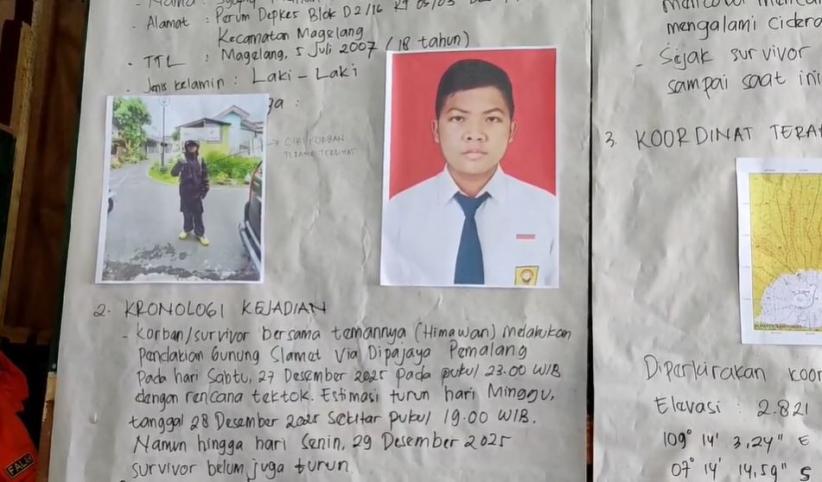 - Alamat : Perum Depkes Blok D2/16
Kecamatan Magelang
- TTL : Magelang, 5 Juli 2007 (18 tahun)
- Jenis kelamin : Laki - Laki
→ CIRI KORBAN
TERAKHIR TERLIHAT
2. KRONOLOGI KEJADIAN
- Korban/survivor bersama temannya (Himawan) melakukan
Pendakian Gunung Slamet Via Dipajaya Pemalang
Pada hari Sabtu, 27 Desember 2025 pada pukul 23.00 WIB
dengan rencana tektok. Estimasi turun hari Minggu,
tanggal 28 Desember 2025 Sekitar pukul 19.00 WIB.
Namun hingga hari Senin, 29 Desember 2025
survivor belum juga turun
mengalami cidera
- Sejak survivor
sampai saat ini
3. KOORDINAT TERA
Diperkirakan koor
Elevasi : 2.821
109° 14' 3,24" E
07° 14' 14,59" S